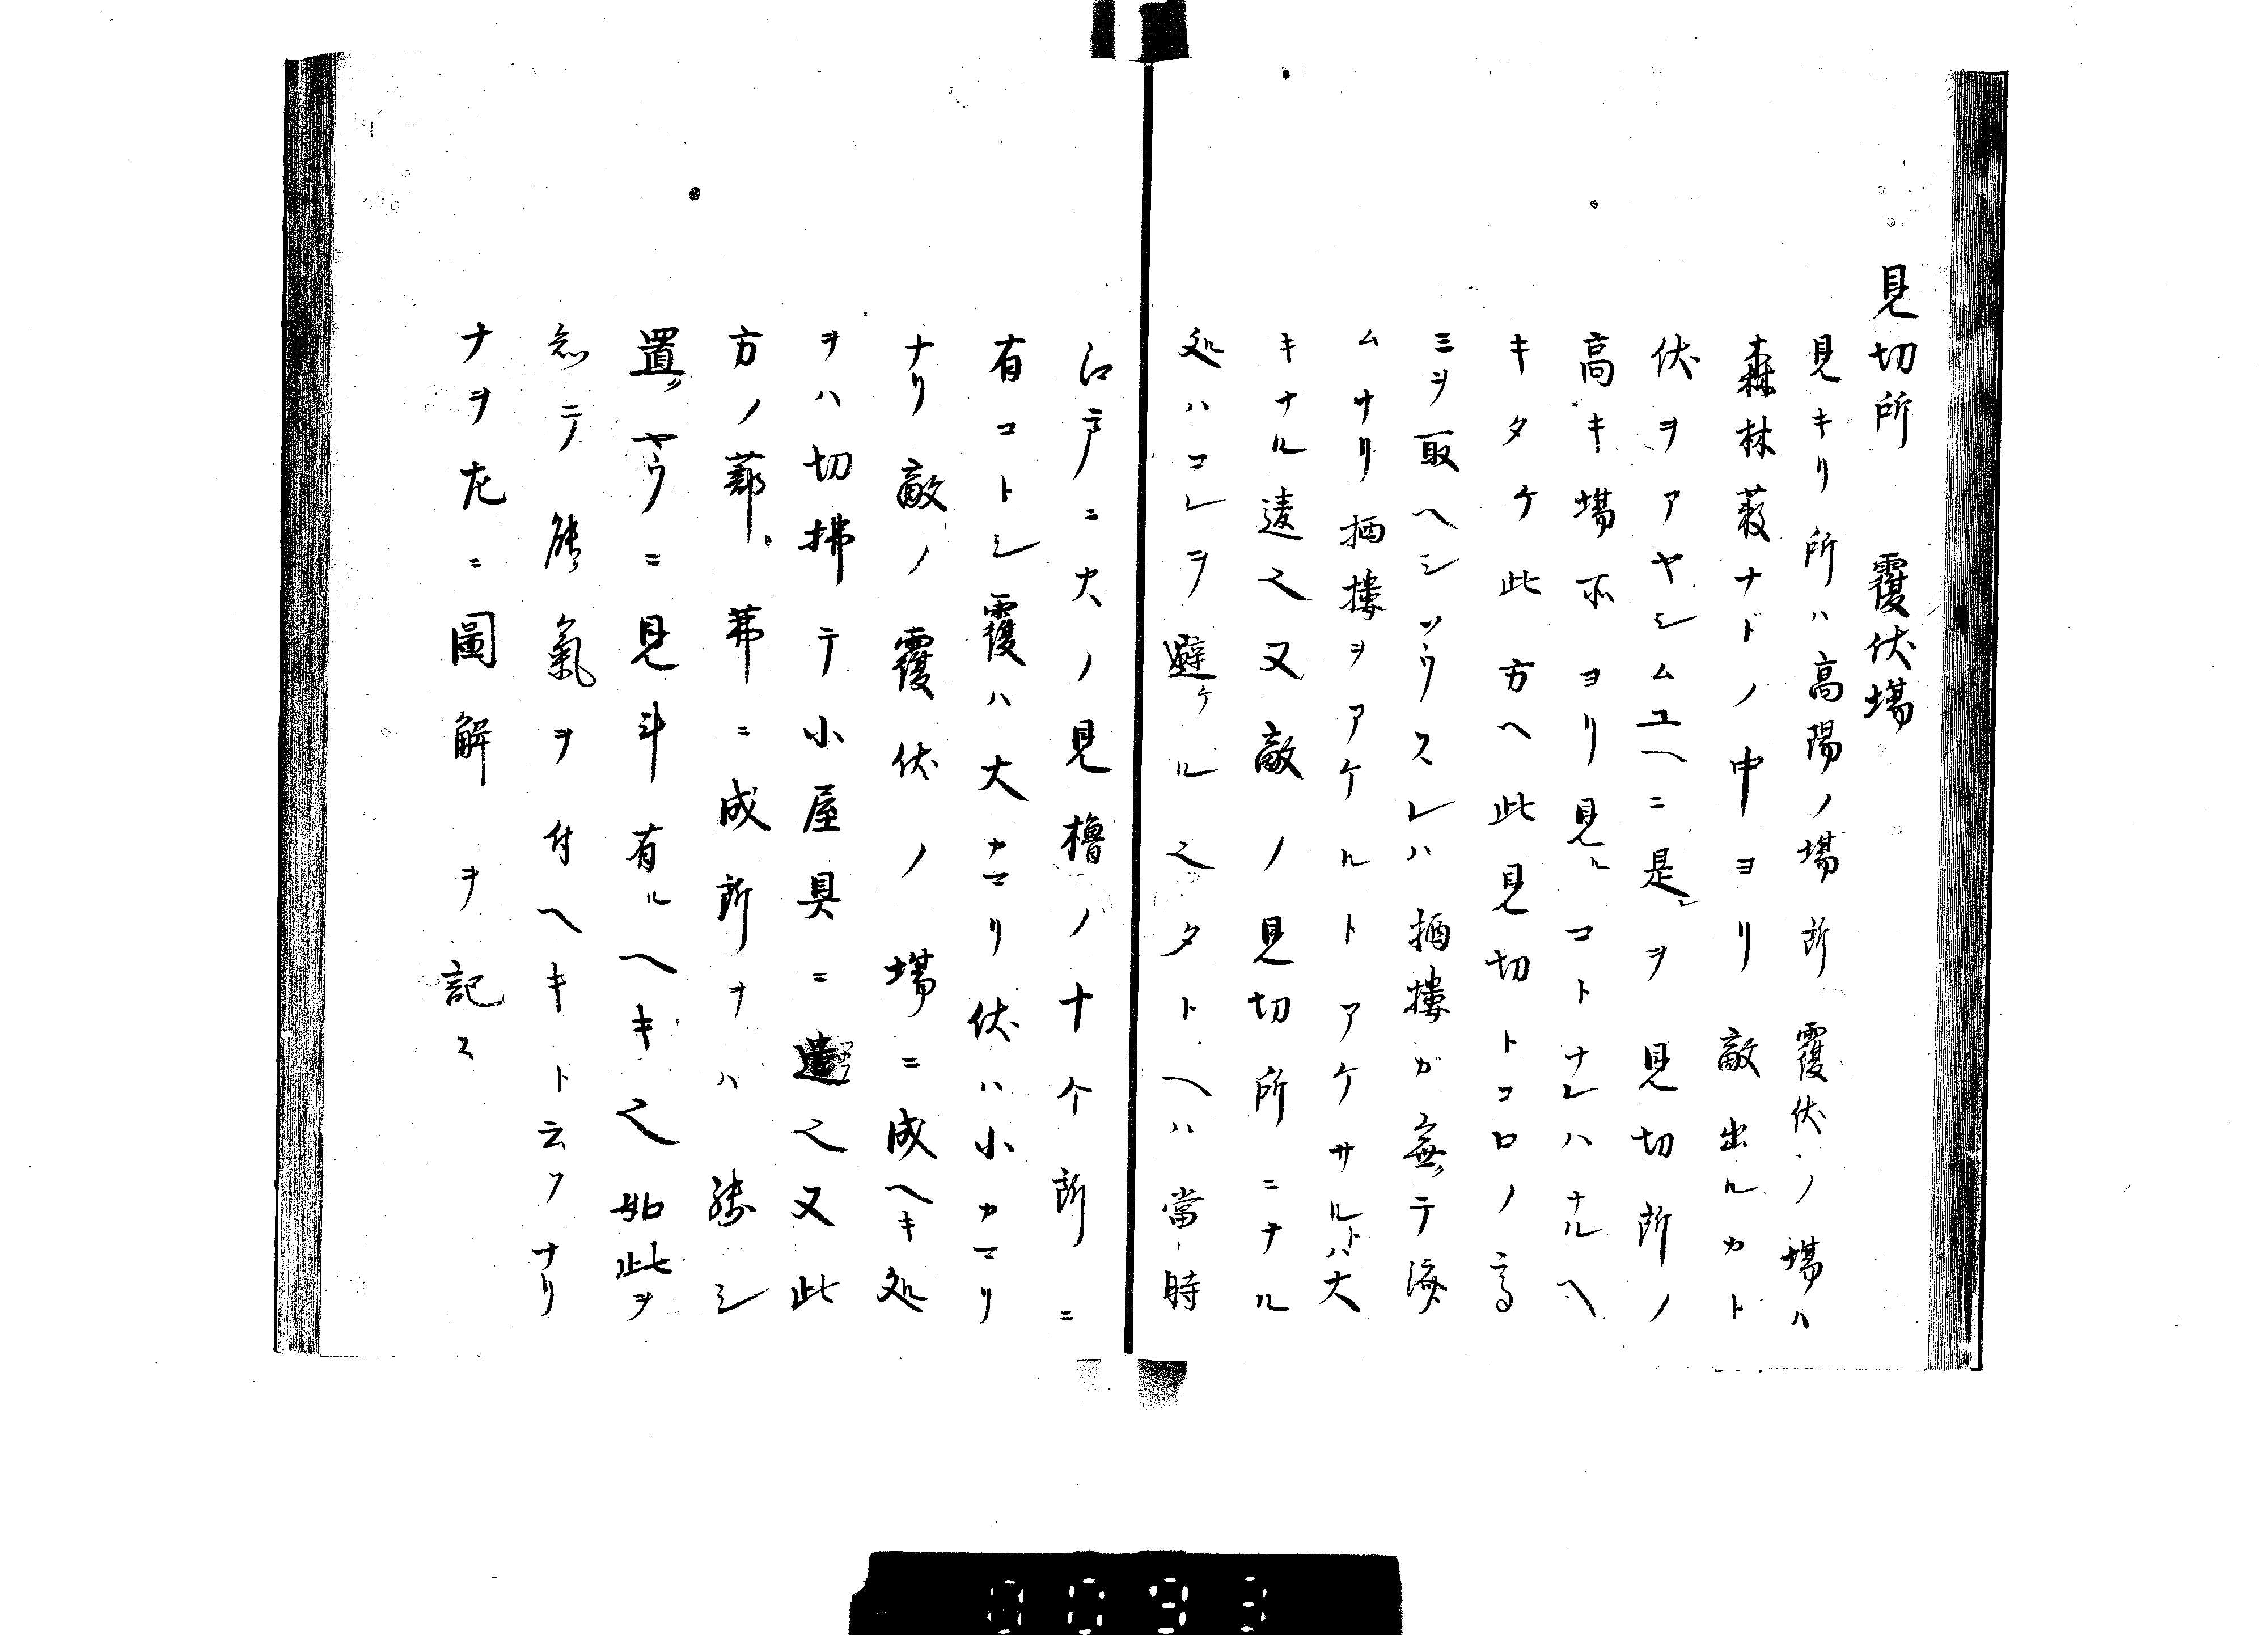 見切所　覆伏場
見キリ所ハ高陽ノ場所覆伏ノ場ハ
森林薮ナドノ中ヨリ敵出ルカト
伏ヲアヤシムユヘニ是レヲ見切所ノ
高キ場所ヨリ見ルコトナレハナルヘ
キタケ此方ヘ此見切トコロノ高
ミヲ取ヘシソウスレハ栖樓ガ無クテ済
ムナリ栖樓ヲアケルトアケサルトハ大
キナル違之又敵ノ見切所ニナル
処ハコレヲ避ケル之タトヘハ當時
江戸ニ火ノ見櫓ノ十个所ニ
有コトシ覆ハ大カマリ伏ハ小カマリ
ナリ敵ノ覆伏ノ場ニ成ヘキ処
ヲハ切拂テ小屋具ニ遣フ之又此
方ノ蔀茀ニ成所ヲハ残シ
置クヤウニ見斗有ルヘキ之如此ヲ
忘テ能氣ヲ付ヘキト云フナリ
ナヲ左ニ圖解ヲ記ス
0093